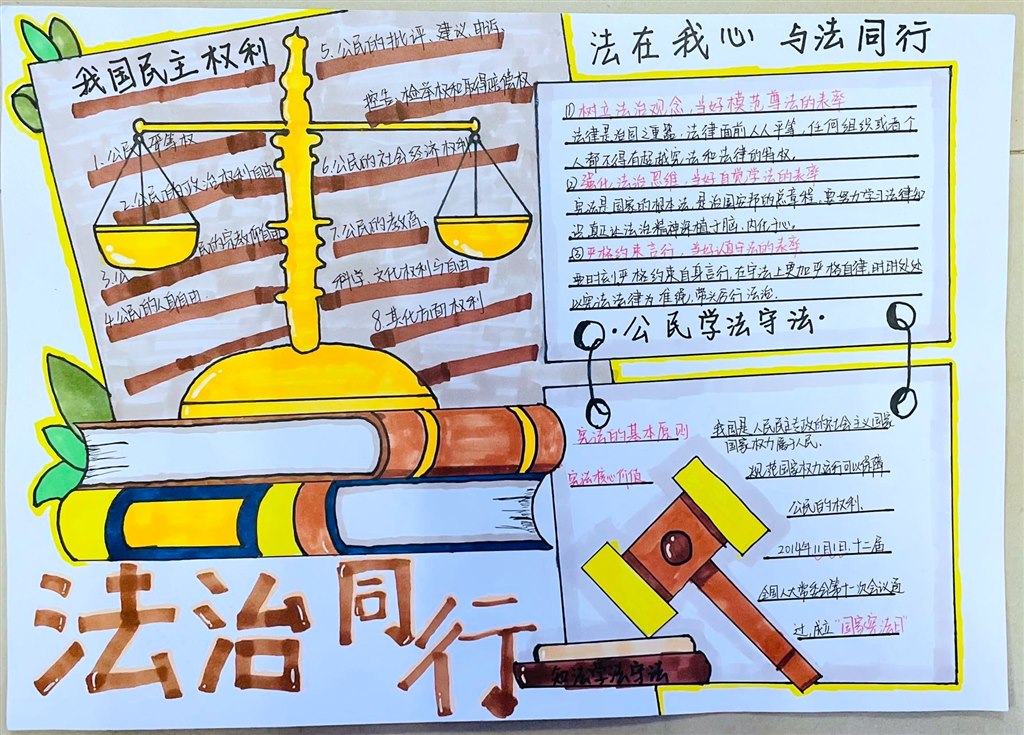 我国民主权利
1.公民平等权
2.公民的政治权利自由
3.公民的宗教信仰自由
4.公民的人身自由.
5.公民的批评、建议、申诉、
控告、检举权和取得赔偿权
6.公民的社会经济权利
7.公民的教育、
科学、文化权利与自由
8.其化方面权利
法在我心 与法同行
①树立法治观念,当好模范尊法的表率
法律是治国之重器.法律面前人人平等,任何组织或者个
人都不得有超越宪法和法律的特权。
②强化法治思维,当好自觉学法的表率
宪法是国家的根本法,是治国安邦的总章程,要努力学习法律知
识,真正让法治精神深植于脑、内化于心。
③严格约束言行,当好认真守法的表率
要时刻严格约束自身言行,在守法上更加严格自律,时时处处
以宪法法律为准绳,带头厉行法治.
·公民学法守法·
宪法的基本原则
宪法核心价值
我国是人民民主专政的社会主义国家
国家权力属于人民.
规范国家权力运行可以保障
公民的权利.
2014年11月1日.十二届
全国人大常委会第十一次会议通
过,成立“国家宪法日”
知法学法守法
法治同行